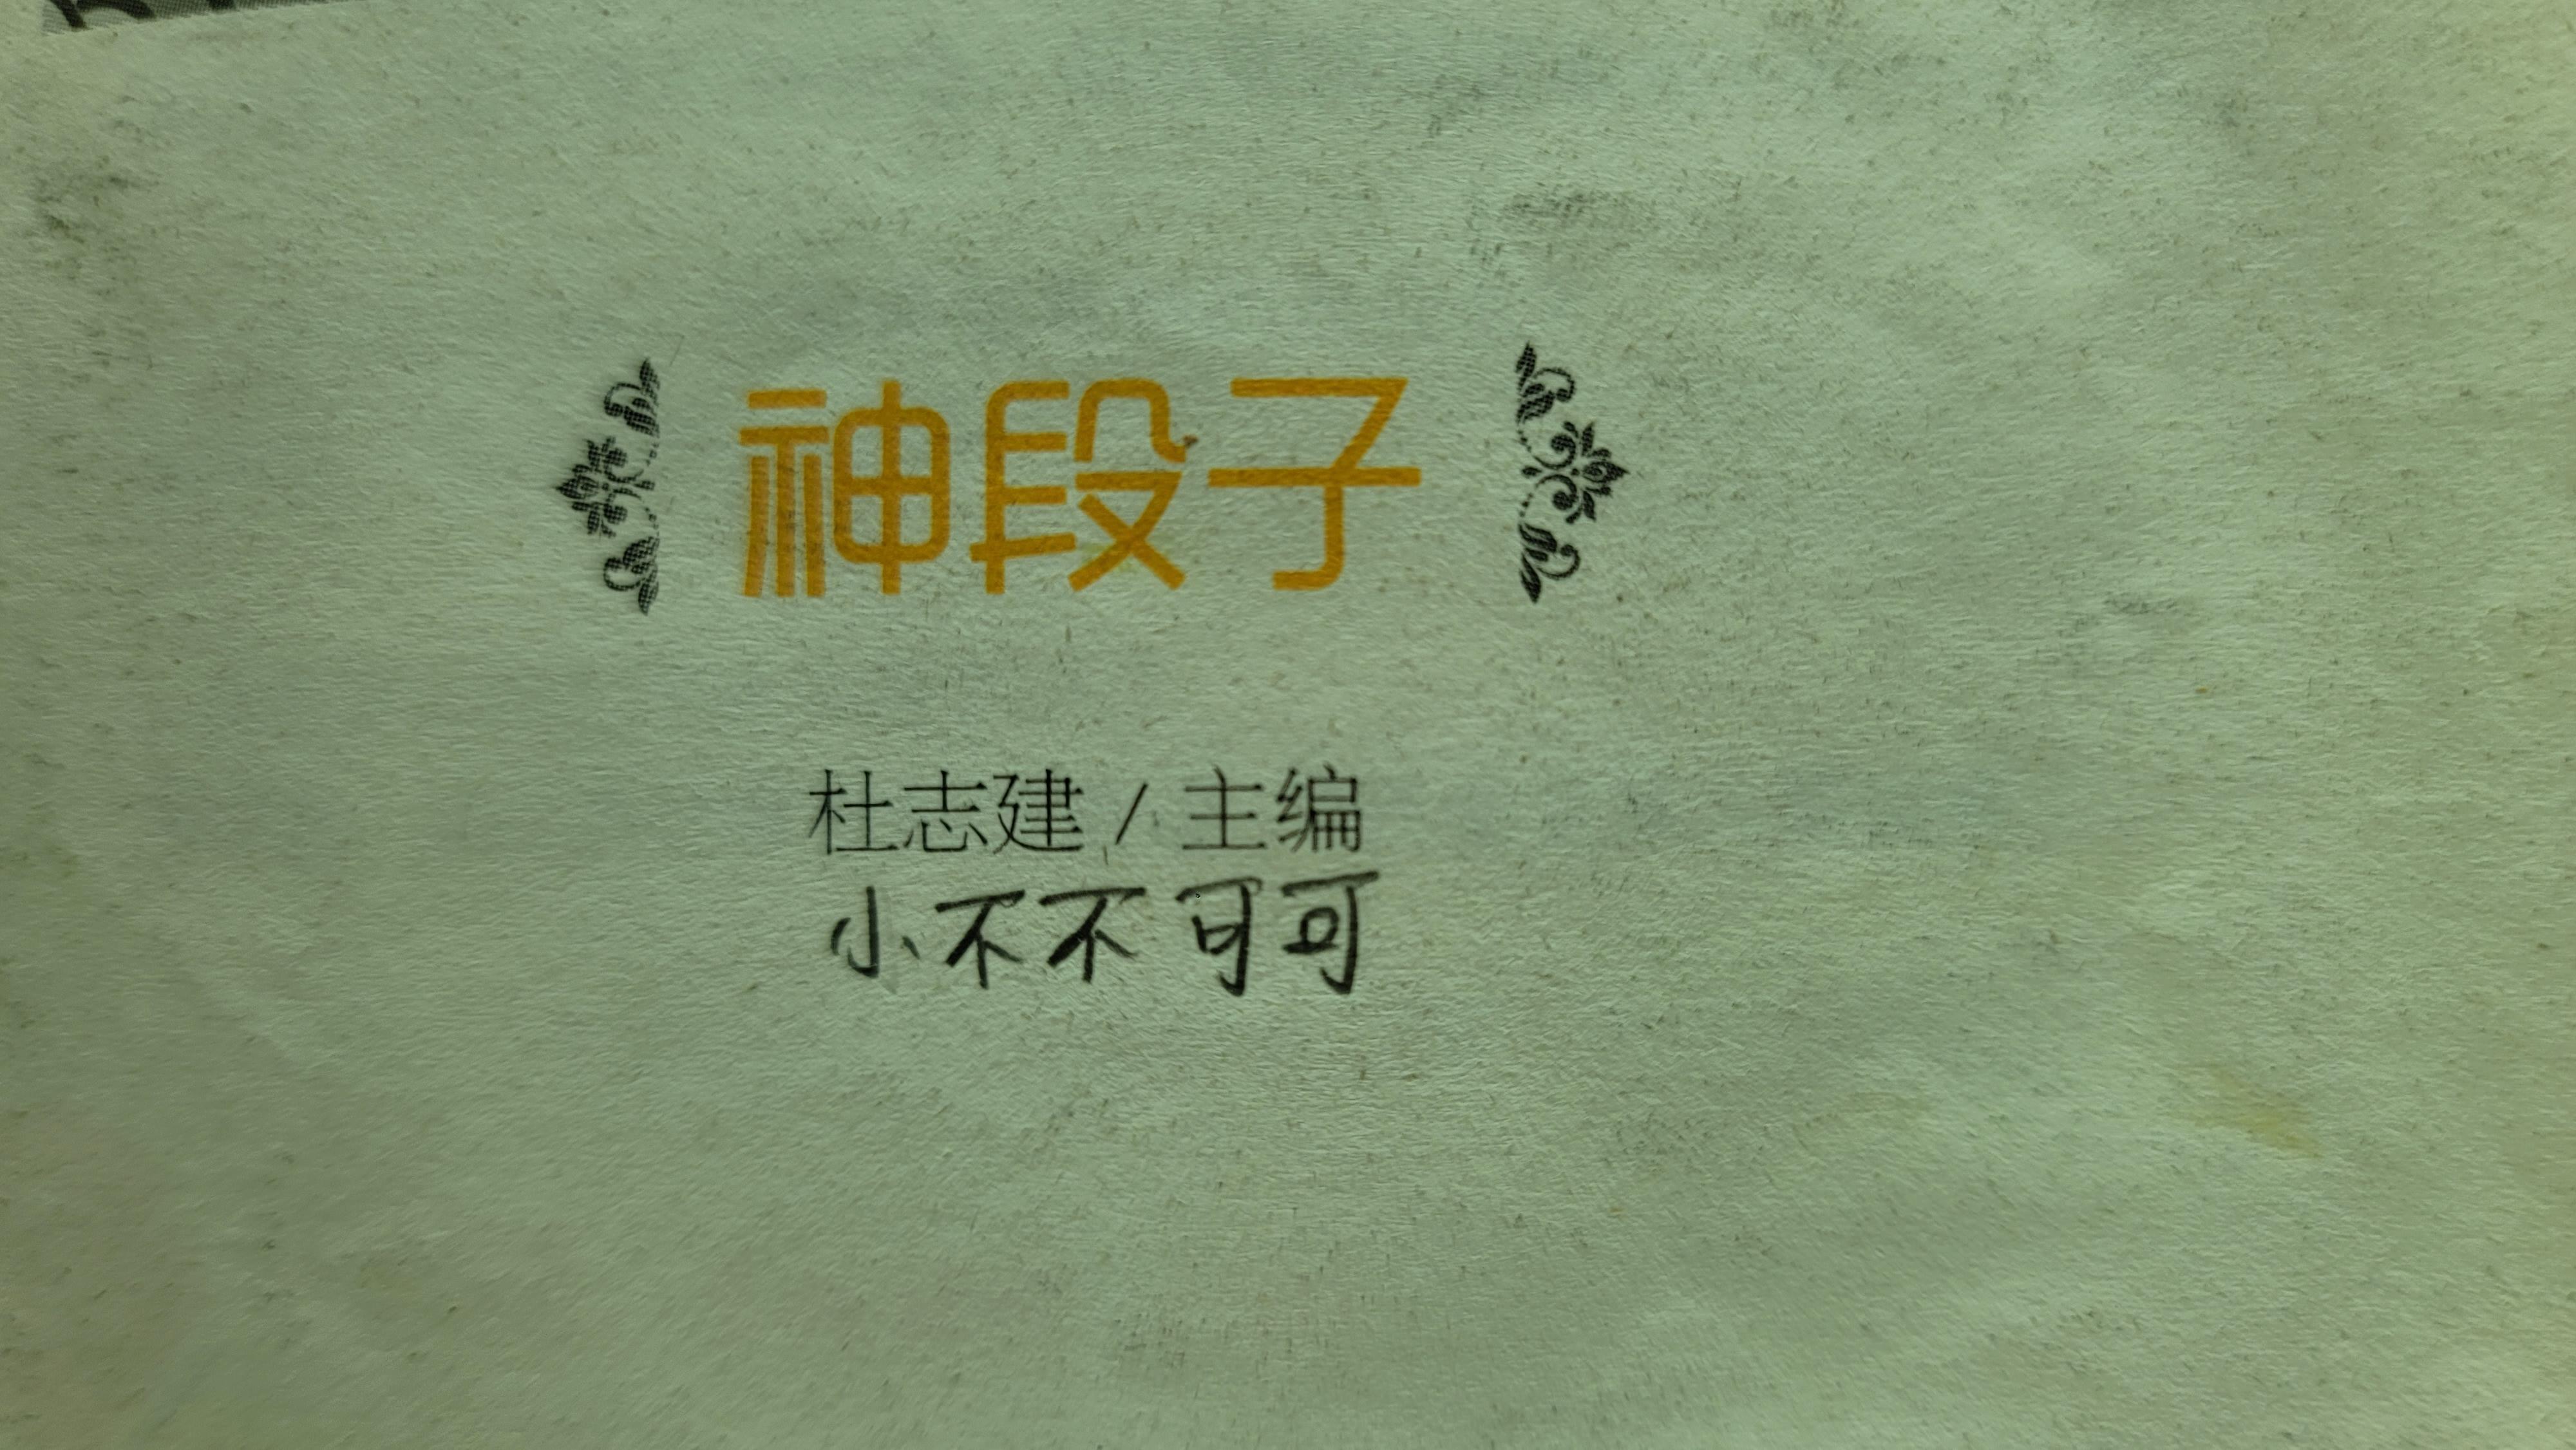 神段子
杜志建/主编
小不不可可